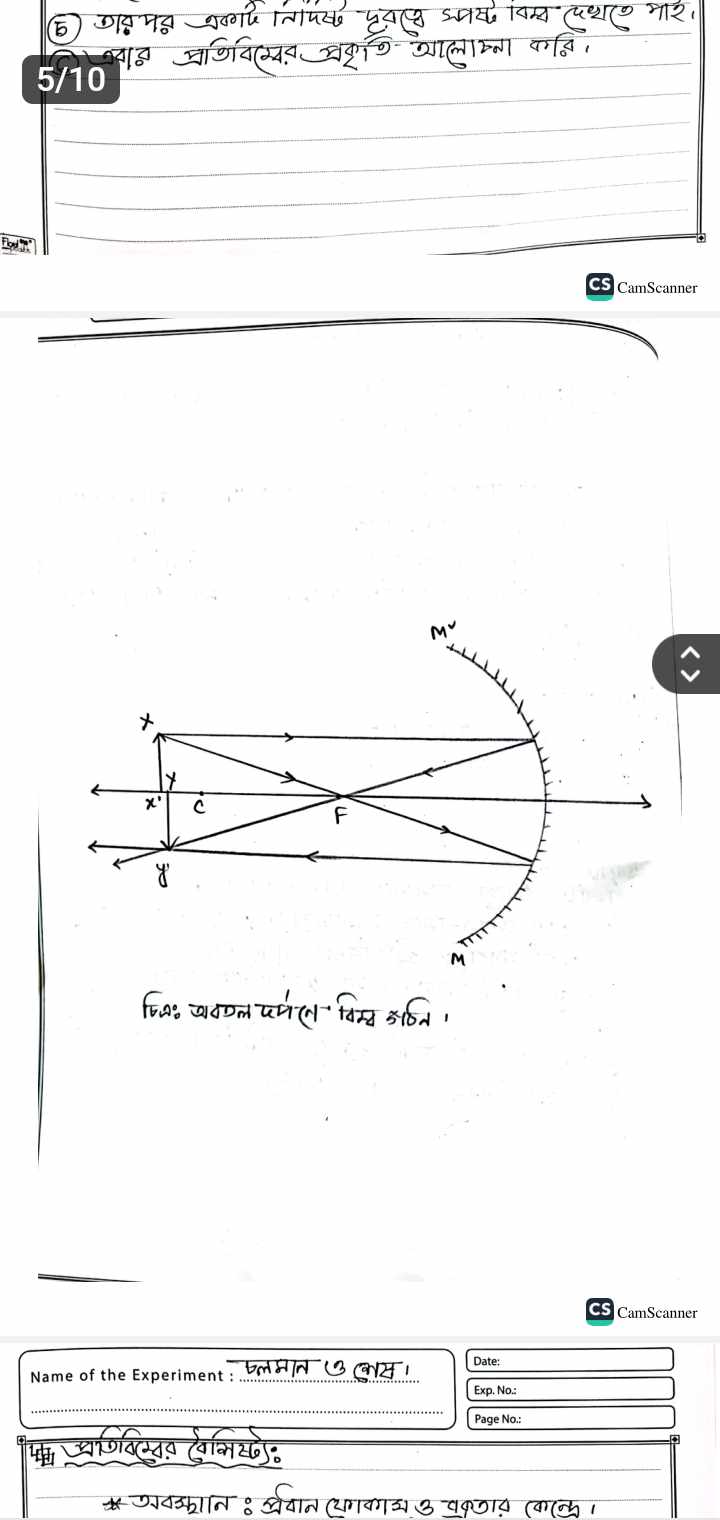 ⑤ তারপর একটি নির্দিষ্ট দূরত্বে স্পষ্ট বিম্ব দেখতে পাই।
এবার প্রতিবিম্বের প্রকৃতি আলোচনা করি।
5/10
CS CamScanner
M'
X
Y
X'
C
F
Y'
M
চিত্রঃ অবতল দর্পণে বিম্ব গঠন।
CS CamScanner
Name of the Experiment : চলমান ও শেষ।
Date:
Exp. No.:
Page No.:
প্রতিবিম্বের বৈশিষ্ট্যঃ
* অবস্থান : প্রধান ফোকাস ও বক্রতার কেন্দ্রে।